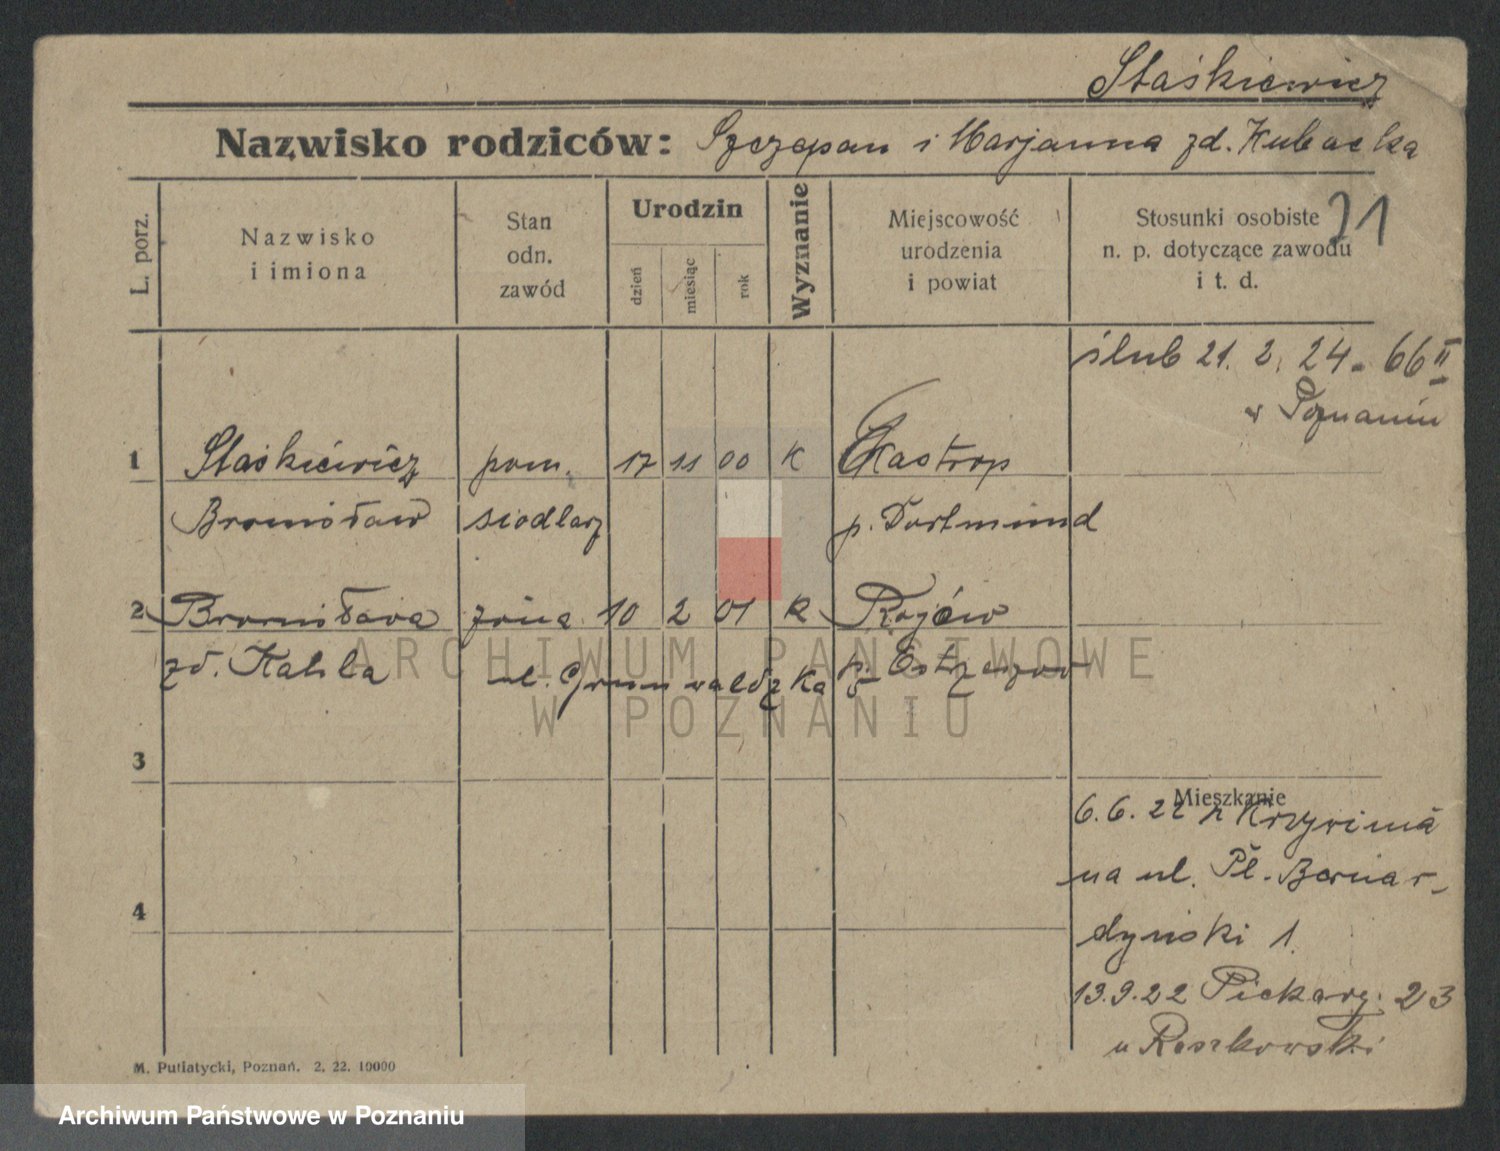 Staśkiewicz
Nazwisko rodziców: Szczepan i Marjanna zd. Kubacka
L. porz.
Nazwisko
i imiona
Stan
odn.
zawód
Urodzin
dzień
miesiąc
rok
Wyznanie
Miejscowość
urodzenia
i powiat
Stosunki osobiste
n. p. dotyczące zawodu
i t. d.
21
ślub 21. 2. 24. 66 II
w Poznaniu
1 Staśkiewicz pom. 17 11 00 K Kastrop
Bronisław siodlarz p. Dortmund
2 Bronisława żona 10 2 01 K Rojów
zd. ul. Grunwaldzka p. Ostrzeszow
3
Mieszkanie
6.6.22 z Krzywinia
na ul. Pl. Bernar-
dyński 1
4
13.9.22 Piekary 23
u Roszkowski
M. Putiatycki, Poznań. 2, 22. 10000
ARCHIWUM PAŃSTWOWE
W POZNANIU
Archiwum Państwowe w Poznaniu